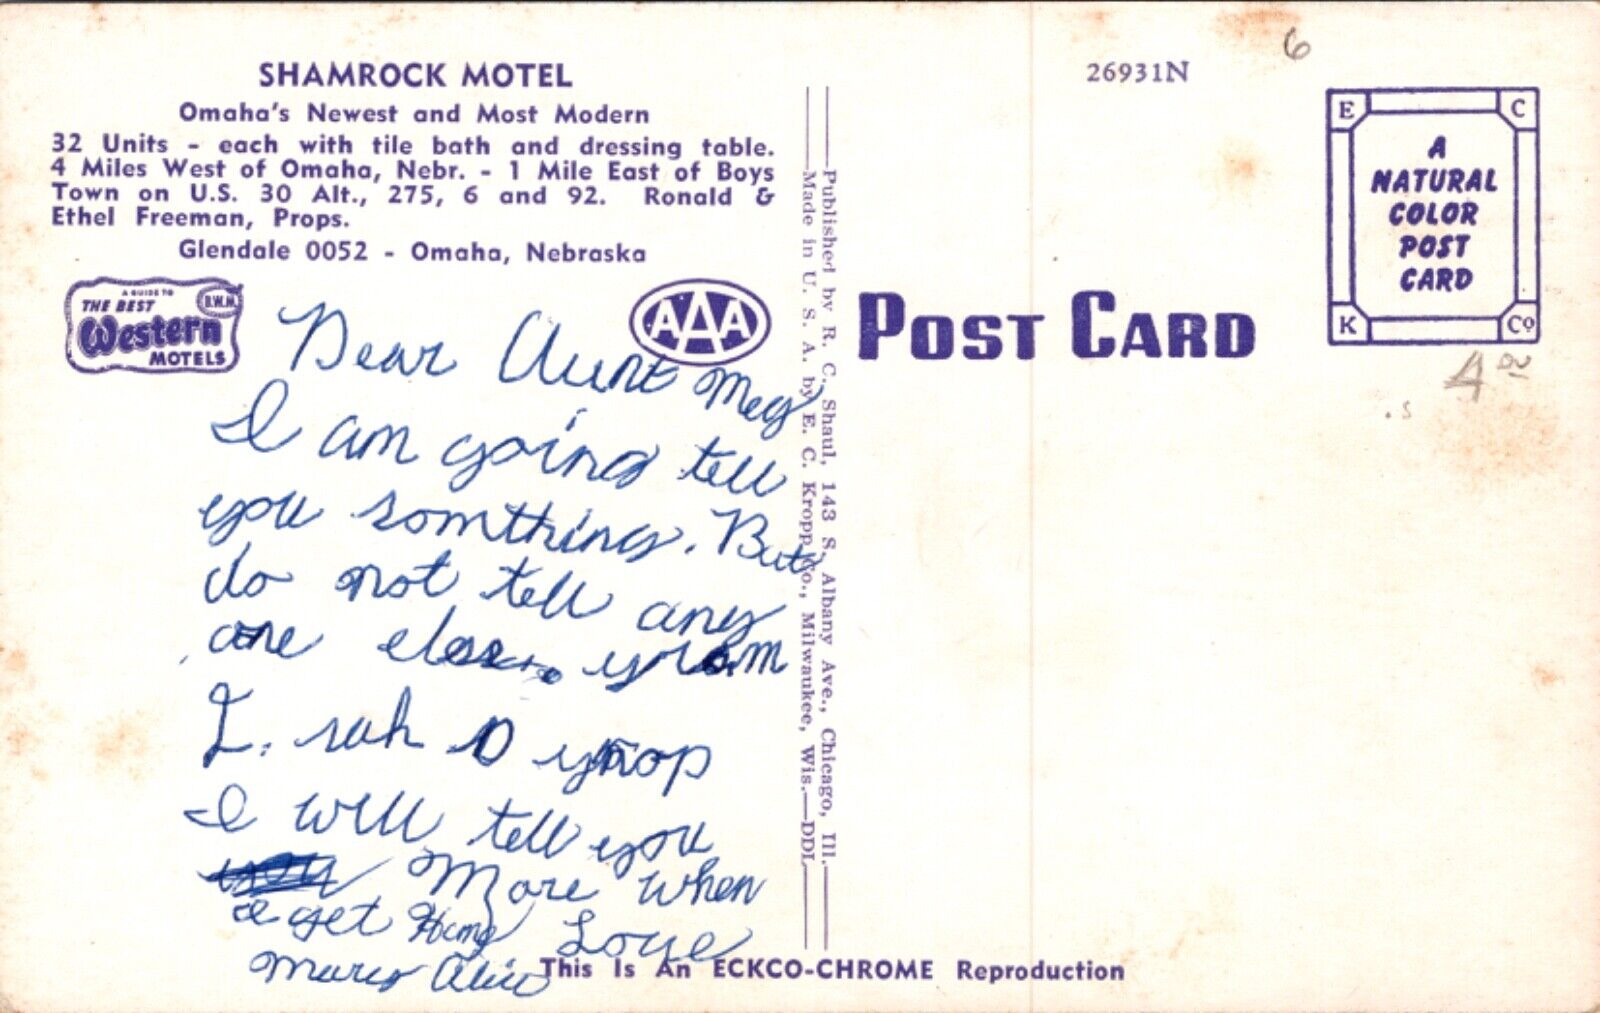 SHAMROCK MOTEL
Omaha's Newest and Most Modern
32 Units - each with tile bath and dressing table.
4 Miles West of Omaha, Nebr. - 1 Mile East of Boys
Town on U.S. 30 Alt., 275, 6 and 92. Ronald &
Ethel Freeman, Props.
Glendale 0052 - Omaha, Nebraska
A GUIDE TO
THE BEST
Western
MOTELS
B.W.M.
AAA
Dear Aunt Meg
I am going tell
you somthing. But
do not tell any
one else.
I. rah
I will tell you
More when
I get Home Love
Alice
Published by R. C. Shaul, 143 S. Albany Ave., Chicago, Ill.
Made in U. S. A. by E. C. Kropp Co., Milwaukee, Wis.—DDL
26931N
6
E C
K Co
A
NATURAL
COLOR
POST
CARD
POST CARD
4 00
.s
This Is An ECKCO-CHROME Reproduction